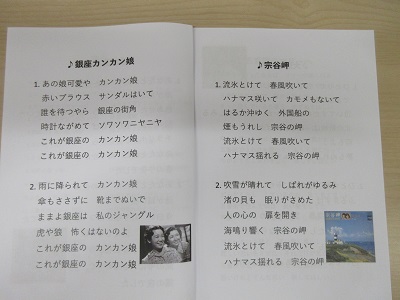 ♪銀座カンカン娘
1. あの娘可愛や　カンカン娘
赤いブラウス　サンダルはいて
誰を待つやら　銀座の街角
時計ながめて　ソワソワニヤニヤ
これが銀座の　カンカン娘
これが銀座の　カンカン娘
2. 雨に降られて　カンカン娘
傘もささずに　靴までぬいで
ままよ銀座は　私のジャングル
虎や狼　怖くはないのよ
これが銀座の　カンカン娘
これが銀座の　カンカン娘
♪宗谷岬
1. 流氷とけて　春風吹いて
ハナマス咲いて　カモメもないて
はるか沖ゆく　外国船の
煙もうれし　宗谷の岬
流氷とけて　春風吹いて
ハナマス揺れる　宗谷の岬
2. 吹雪が晴れて　しばれがゆるみ
渚の貝も　眠りがさめた
人の心の　扉を開き
海鳴り響く　宗谷の岬
流氷とけて　春風吹いて
ハナマス揺れる　宗谷の岬